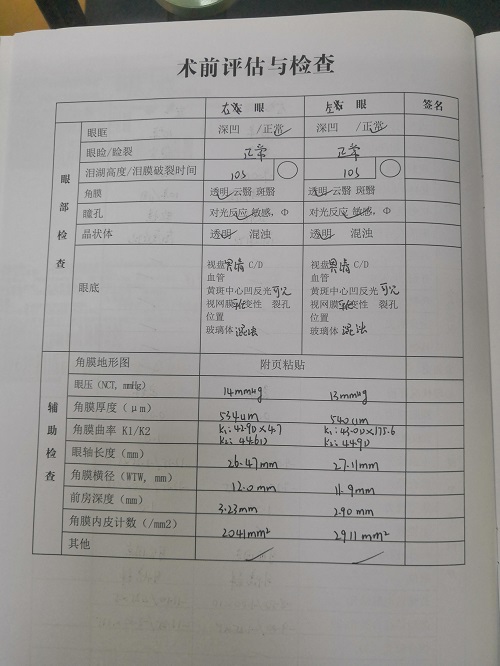 术前评估与检查
右 眼 左 眼 签名
眼部检查
眼眶 深凹 /正常 深凹 /正常
眼睑/睑裂 正常 正常
泪湖高度/泪膜破裂时间 10s 10s
角膜 透明 云翳 斑翳 透明 云翳 斑翳
瞳孔 对光反应 敏感，Φ 对光反应 敏感，Φ
晶状体 透明 混浊 透明 混浊
眼底
视盘界清 C/D 视盘界清 C/D
血管 血管
黄斑中心凹反光可见 黄斑中心凹反光可见
视网膜 变性 裂孔 视网膜 变性 裂孔
位置 位置
玻璃体 混浊 玻璃体 混浊
辅助检查
角膜地形图 附页粘贴
眼压（NCT, mmHg） 14mmHg 13mmHg
角膜厚度（μm） 534um 540um
角膜曲率 K1/K2 K1:42.9D×4.7 K1:43.0D×175.6
K2:44.61D K2:44.9D
眼轴长度（mm） 26.47mm 27.11mm
角膜横径（WTW, mm） 12.0mm 11.9mm
前房深度（mm） 3.23mm 2.90mm
角膜内皮计数（/mm2） 2041mm² 2911mm²
其他